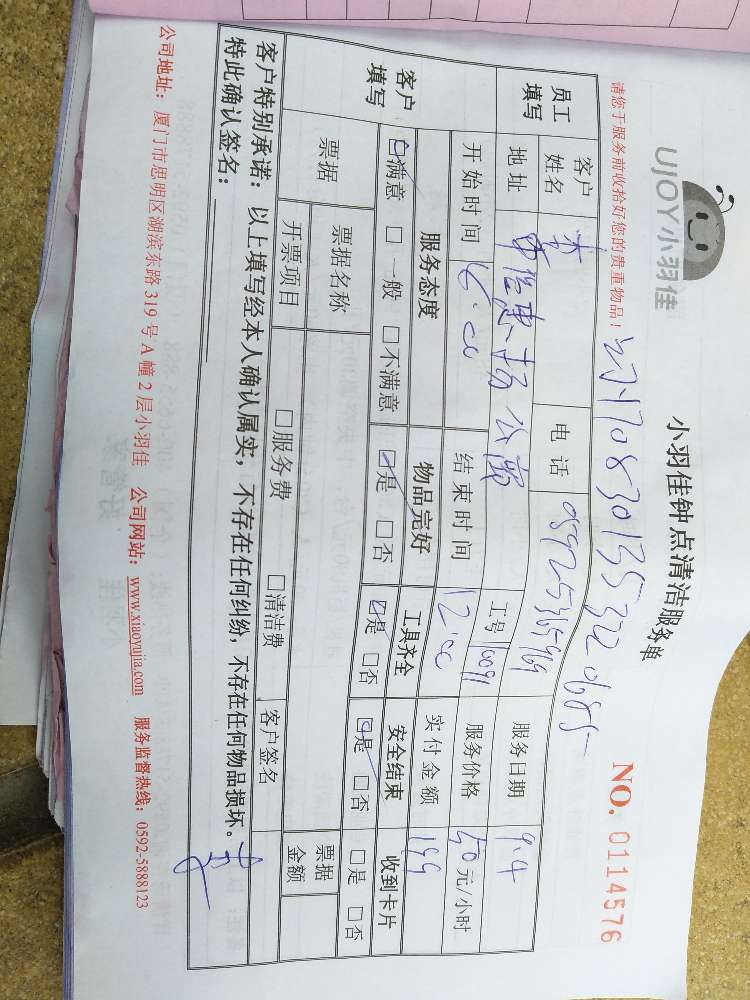 UJOY小羽佳
小羽佳钟点清洁服务单
请您于服务前收拾好您的贵重物品！
NO. 0114576
员工填写
客户姓名 电话 服务日期 9.4
地址 工号 10091 服务价格 50 元/小时
开始时间 结束时间 12:00 实付金额 199
客户填写
服务态度 物品完好 工具齐全 安全结束 收到卡片
☑满意 □ 一般 □不满意 ☑是 □否 ☑是 □否 ☑是 □否 □是 □否
票据 票据名称 客户签名 票据金额
开票项目 □服务费 □清洁费
客户特别承诺：以上填写经本人确认属实，不存在任何纠纷，不存在任何物品损坏。
特此确认签名：
公司地址：厦门市思明区湖滨东路 319 号 A 幢 2 层小羽佳 公司网站：www.xiaoyujia.com 服务监督热线：0592-5888123